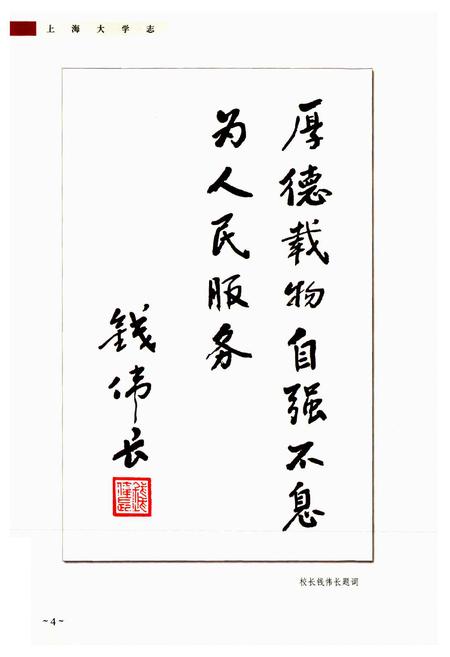 上海大学志
厚德载物自强不息
为人民服务
钱伟长
校长钱伟长题词
~4~